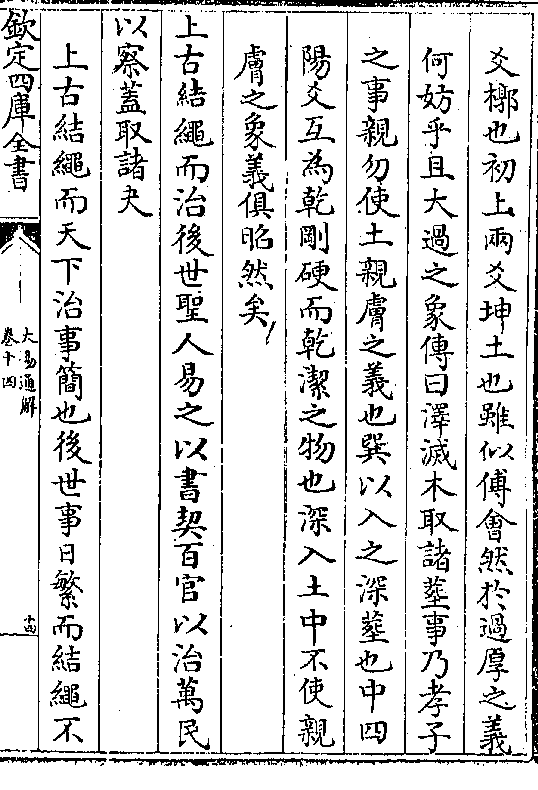 爻槨也初上兩爻坤土也雖似傅會然於過厚之義
何妨乎且大過之象傳曰澤滅木取諸塟事乃孝子
之事親勿使土親膚之義也巽以入之深塟也中四
陽爻互為乾剛硬而乾潔之物也深入土中不使親
膚之象義俱昭然矣
上古結繩而治後世聖人易之以書契百官以治萬民
以察蓋取諸夬
上古結繩而天下治事簡也後世事日繁而結繩不
欽定四庫全書
大易通解
卷十四
十四